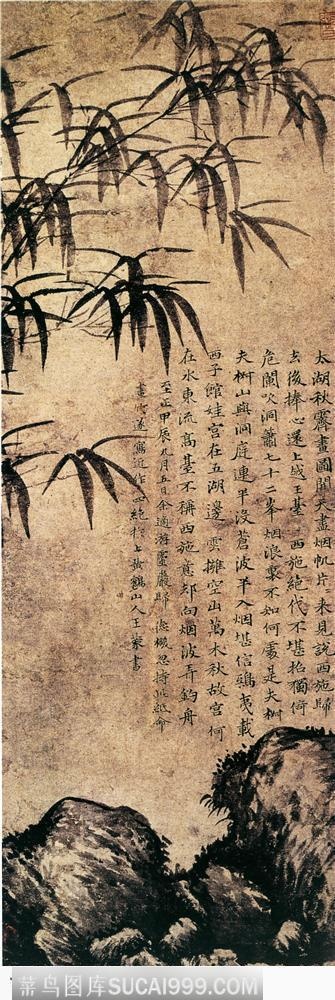 太湖秋霽畫圖開天盡烟帆片〻來見說西施歸
去後捧心還上越王臺 西施絕代不堪招獨倚
危闌吹洞簫七十二峯烟浪裏不知何處是夫椒
夫椒山與洞庭連半沒蒼波半入烟堪信鴟夷載
西子館娃宮在五湖邊 雲擁空山萬木秋故宮何
在水東流高臺不稱西施意却向烟波弄釣舟
至正甲辰九月五日余適遊靈巖歸德機忽持此紙命
畫竹遂寫近作四絕於上黃鶴山人王蒙書
菜鸟图库SUCAI999.COM